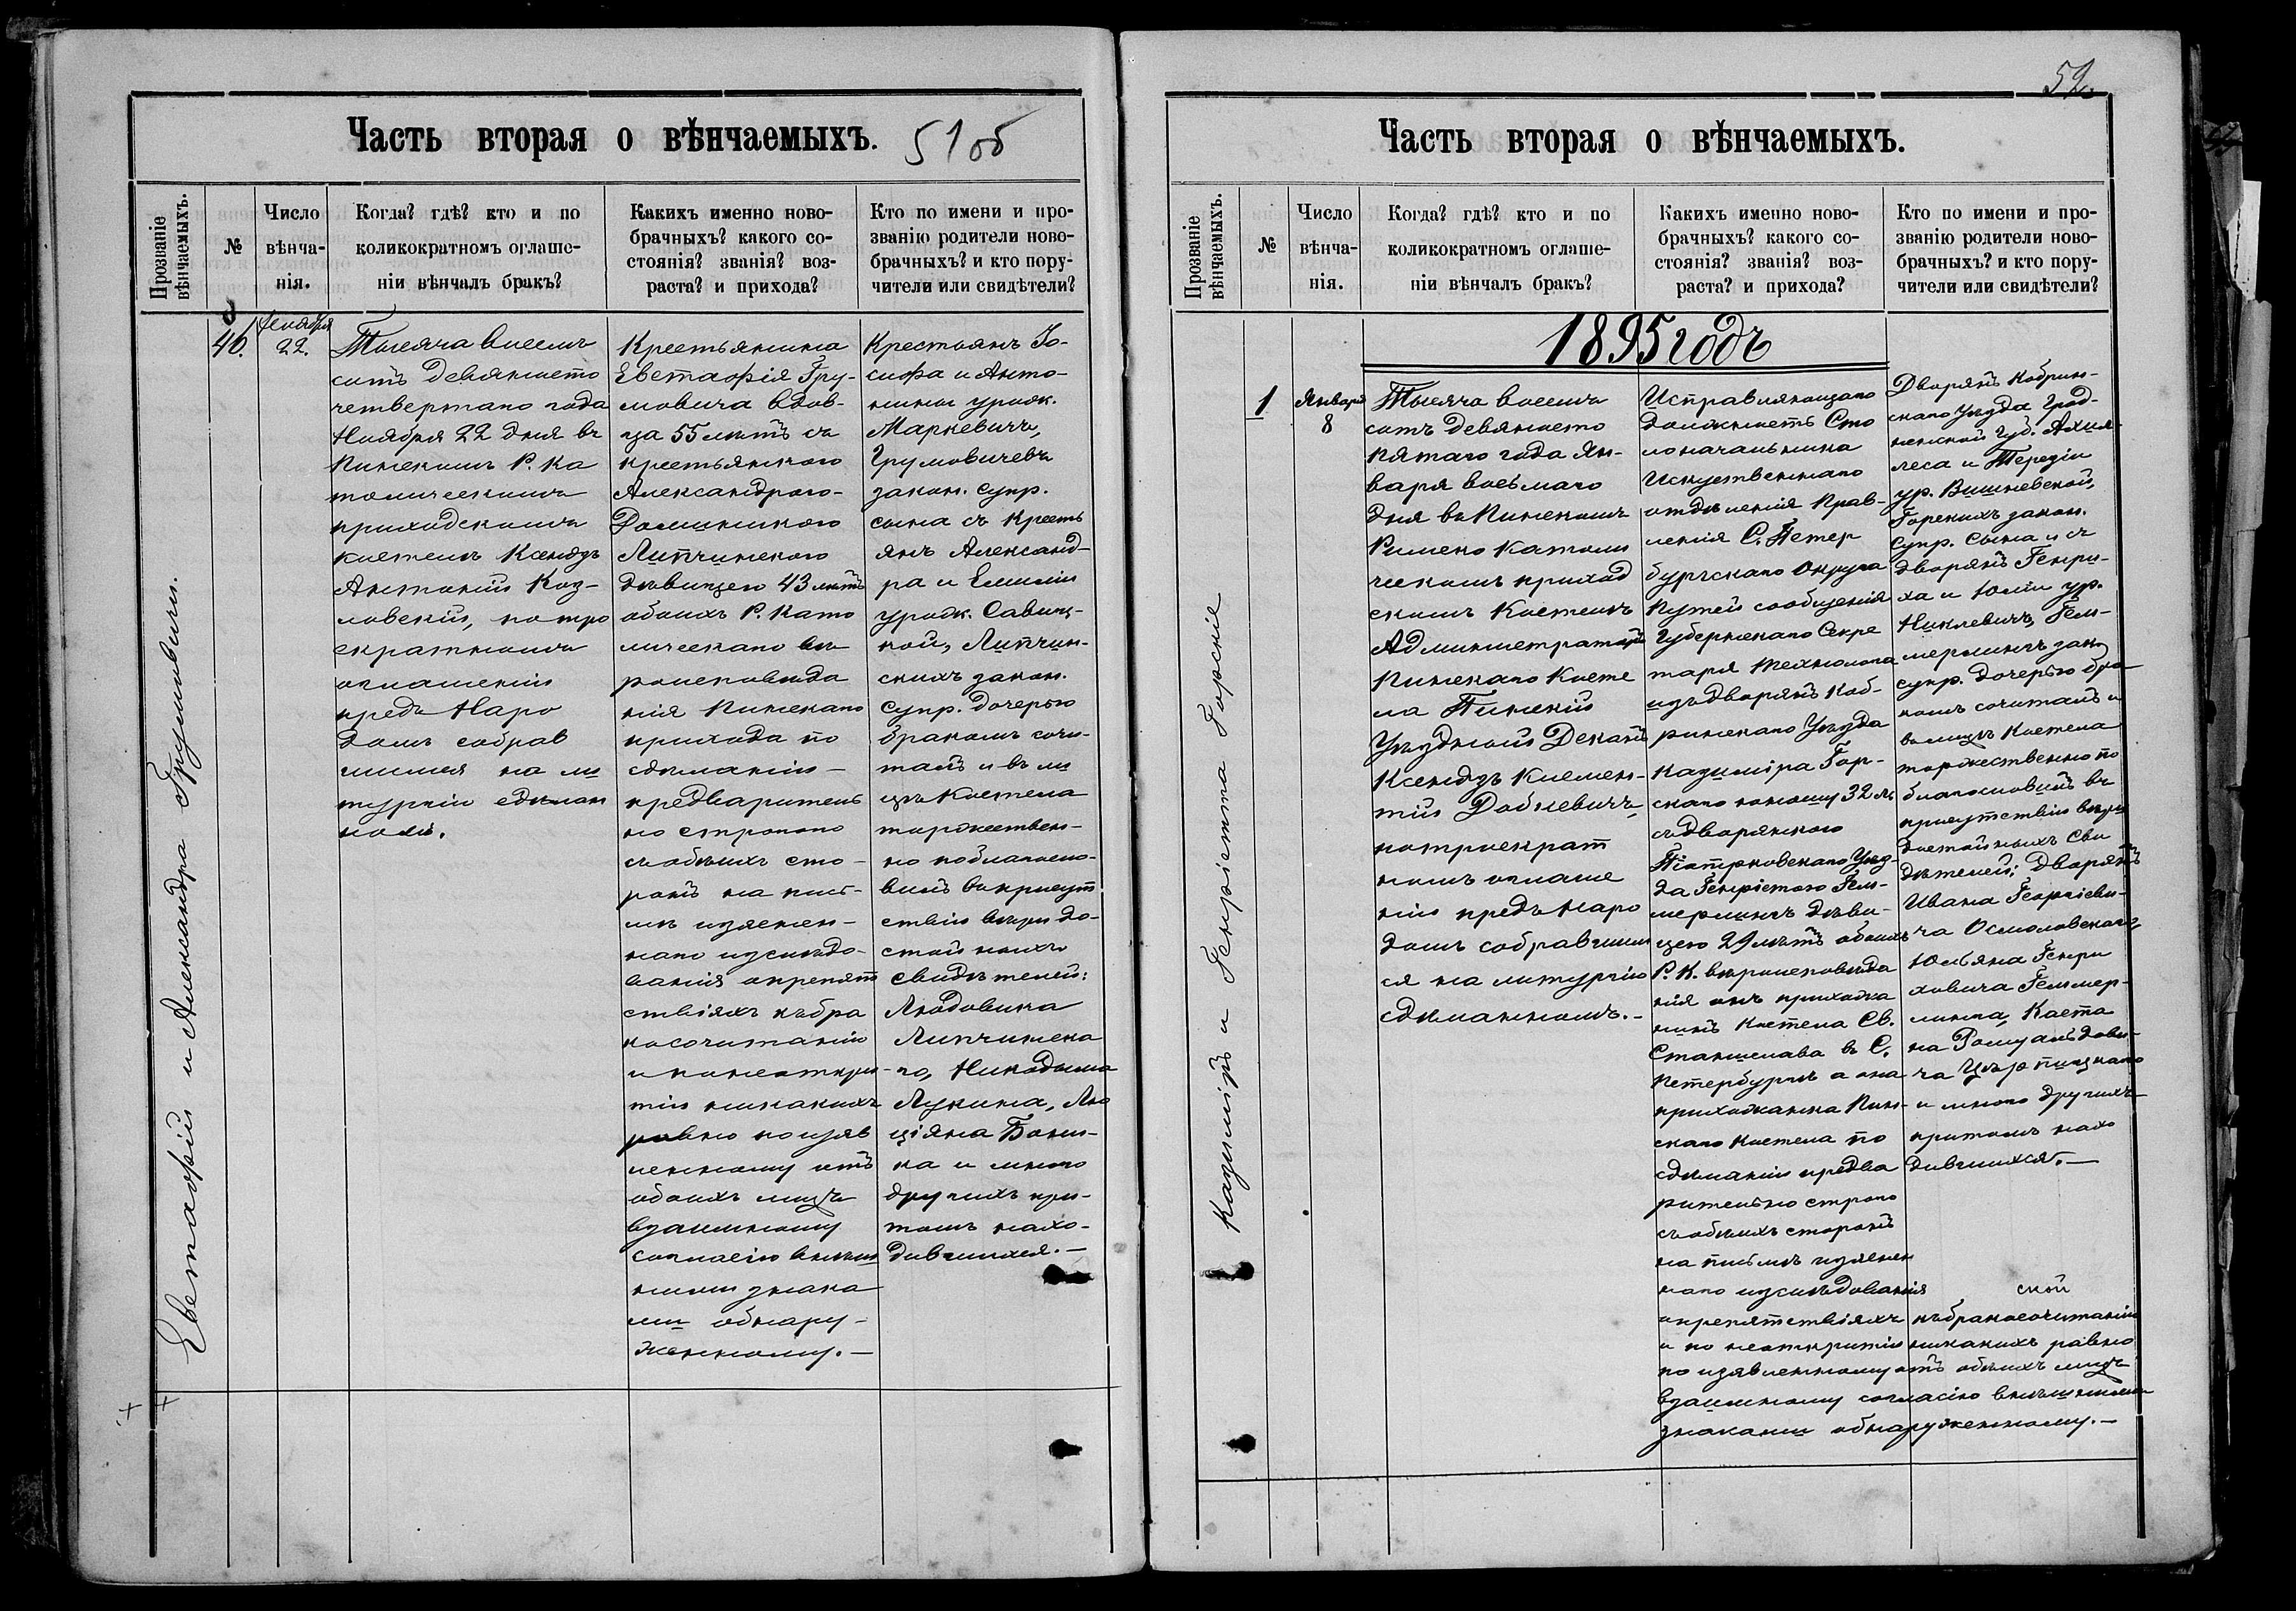 Часть вторая о вѣнчаемыхъ.
51об
Прозваніе
вѣнчаемыхъ.
№
Число
вѣнча-
нія.
Когда? гдѣ? кто и по
коликократномъ оглаше-
ніи вѣнчалъ бракъ?
Какихъ именно ново-
брачныхъ? какого со-
стоянія? званія? воз-
раста? и прихода?
Кто по имени и про-
званію родители ново-
брачныхъ? и кто пору-
чители или свидѣтели?
Евстафій и Александра Грушовичи.
46.
22.
Тысяча восемъ
сотъ девяносто
четвертаго года
Ноября 22 дня въ
Пинскомъ Р. Ка
толическомъ
приходскомъ
костелѣ Ксендзъ
Антоній Коз-
ловскій, по тро
екратномъ
оглашеніи
предъ Наро
домъ собрав
шимся на ли
тургію сдѣлан
номъ.
Крестьянина
Евстафія Гру-
мовича вдов-
ца 55 лѣтъ съ
крестьянкою
Александрою-
Доминикою
Липчинскою
дѣвицею 43 лѣтъ
обоихъ Р. Като
лическаго вѣ
роисповѣда
нія Пинскаго
прихода по
сдѣланіи-
предваритель
но строгого
съ обѣихъ сто-
ронъ на пись-
мѣ изяснен-
наго изслѣдо-
ванія о препят
ствіяхъ къ бра
косочитанію
и по неоткры-
тіи никакихъ
равно по изяв
ленному отъ
обоихъ лицъ
взаимному
согласію внѣш
ними знака
ми обнару-
женному.-
Крестьянъ Іо-
сифа и Анто-
нины урожд.
Маркевичъ,
Грумовичевъ
закон. супр.
сына съ Кресть
янъ Александ-
ра и Емиліи
урожд. Савиц-
кой, Липчин-
скихъ закон.
супр. дочерью
бракомъ соче-
талъ и въ ли
цѣ Костела
торжествен-
но поблагосло-
вилъ въ присут
ствіи вѣры до-
стойныхъ
свидѣтелей:
Людовика
Липчинска
го, Никодыма
Лукина, Лю
ціяна Бони-
ка и много
другихъ при-
томъ нахо-
дившихся.-
52.
Часть вторая о вѣнчаемыхъ.
Прозваніе
вѣнчаемыхъ.
№
Число
вѣнча-
нія.
Когда? гдѣ? кто и по
коликократномъ оглаше-
ніи вѣнчалъ бракъ?
Какихъ именно ново-
брачныхъ? какого со-
стоянія? званія? воз-
раста? и прихода?
Кто по имени и про-
званію родители ново-
брачныхъ? и кто пору-
чители или свидѣтели?
1895 годъ
Казиміръ и Генріетта Горскіе
1
Января
8
Тысяча восемъ
сотъ девяносто
пятаго года Ян-
варя восьмаго
дня въ Пинскомъ
Римско Католи
ческомъ приход
скомъ Костелѣ
Администраторъ
Пинскаго Косте
ла Пинскій
Уѣздный Деканъ
Ксендзъ Клемен-
тій Доблевичъ,
по троекрат
номъ оглаше
ніи предъ Наро
домъ собравшим
ся на литургію
сдѣланномъ.-
Исправляющаго
должность Сто
лоначальника
Искуственнаго
отдѣленія Прав-
ленія С. Петер
бургскаго Округа
Путей сообщенія
Губернскаго Секре
таря технолога
изъ дворянъ Коб-
ринскаго Уѣзда
Казиміра Гор-
скаго юношу 32 лѣ
съ дворянкою
Піотрковскаго Уѣз-
да Генріетою Гель-
мерлингъ дѣви-
цею 29 лѣтъ обоихъ
Р. К. вѣроисповѣда
нія онъ прихожа
нинъ Костела Св.
Станислава въ С.
Петербургѣ а она
прихожанка Пин-
скаго Костела по
сдѣланіи предва
рительно строго
съ обѣихъ сторонъ
на письмѣ изяснен
наго изслѣдованія
о препятствіяхъ къ бракосочитанію
и по неоткрытіи никакихъ равно
по изявленному отъ обѣихъ лицъ
взаимному согласію внѣшними
знаками обнаруженному.-
Дворянъ Кобрин-
скаго Уѣзда Грод-
ненской Губ. Ахил-
леса и Терезіи
ур. Вишневской,
Горскихъ закон.
супр. сына и съ
дворянъ Генри-
ха и Юліи ур.
Никлевичъ, Гель-
мерлингъ закон
супр. дочерью бра
комъ сочеталъ и
въ лицѣ Костела
торжественно по
благословилъ въ
присутствіи вѣры
достойныхъ сви
дѣтелей; дворянъ
Ивана Георгіеви-
ча Осмоловскаго,
Юльяна Генри
ховича Гельмер-
линга,
и много другихъ
притомъ нахо
дившихся.-
ской